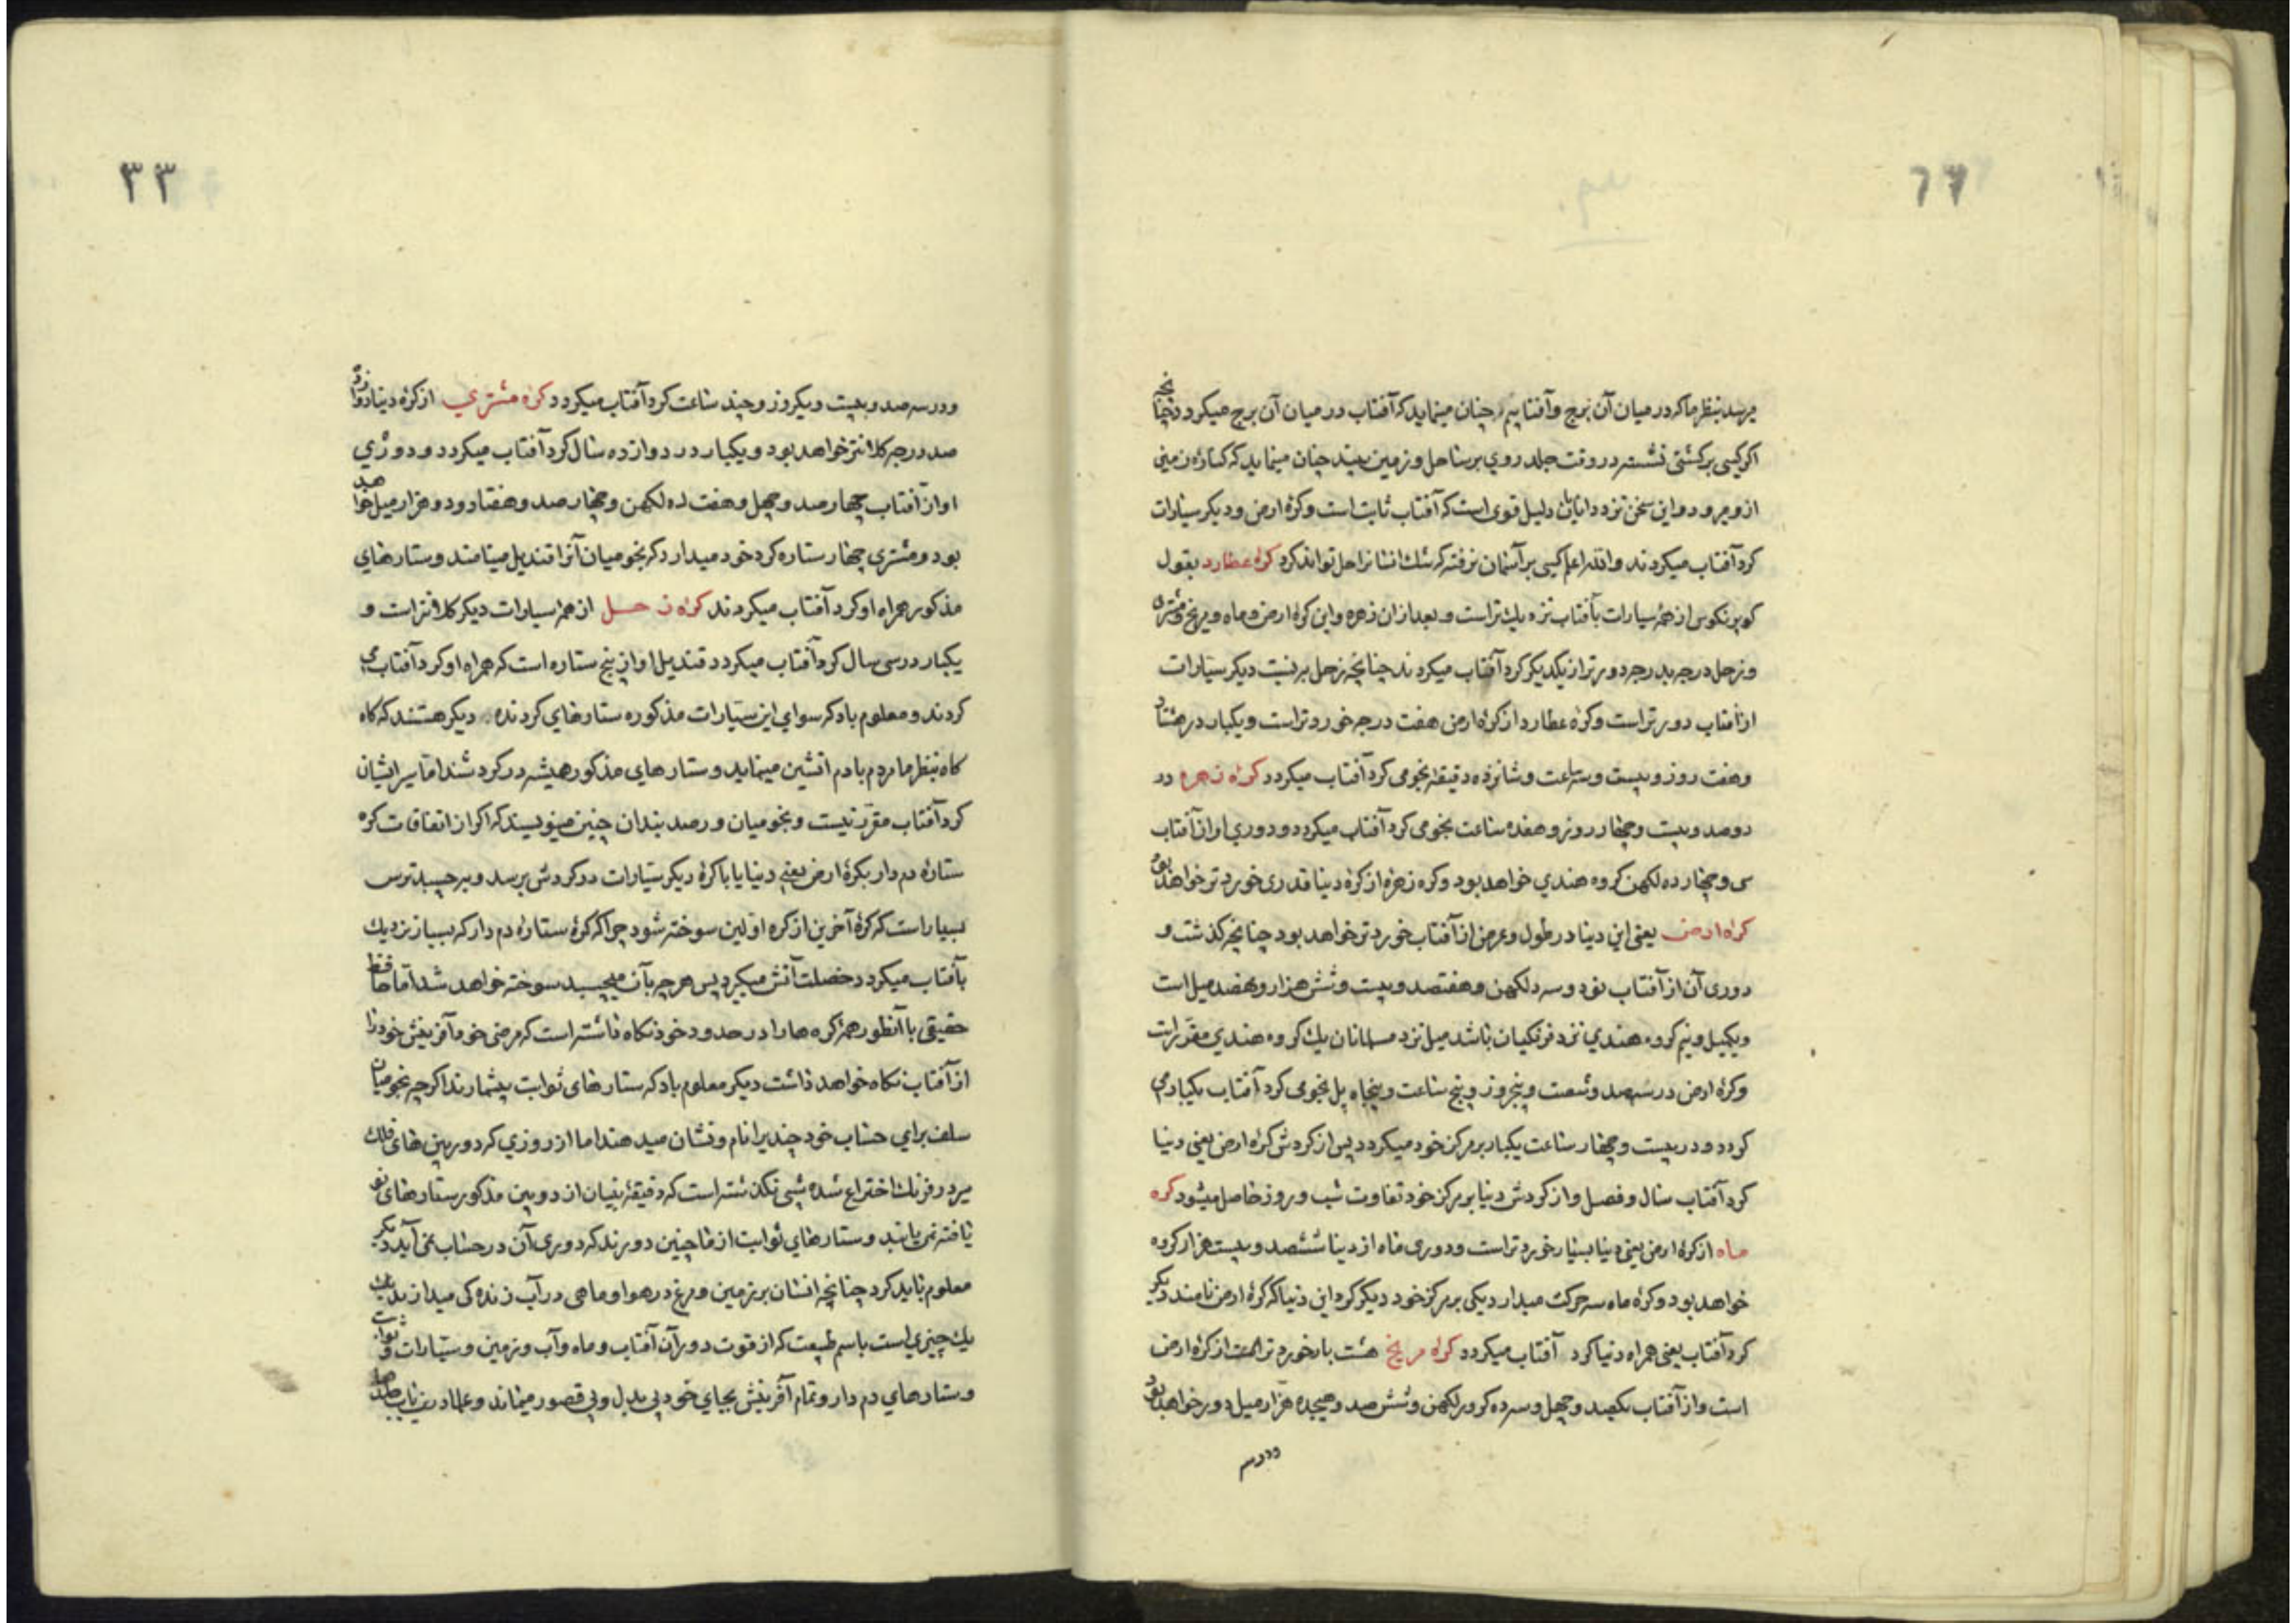 میرسد بنظر ما که در میان آن برج و آفتابیم چنان مینماید که آفتاب در میان آن برج میکردد چنانچه
اکر کسی بر کشتی نشسته در وقت جلد روی بر ساحل و زمین بیند چنان مینماید که کناره زمین
ازو میرود و این سخن نزد دانایان دلیل قوی است که آفتاب ثابت است و کرهٔ ارض و دیکر سیارات
کرد آفتاب میکردند والله اعلم کسی بر آسمان نرفته که شک انسانرا حل تواند کرد کره عطارد بقول
کوپرنکوس از همهٔ سیارات بآفتاب نزدیک تراست و بعد ازان زهره و این کره ارض و ماه و مریخ و مشتری
و زحل درجه بدرجه دورتر از یکدیکر کرد آفتاب میکردند چنانچه زحل بر نسبت دیکر سیارات
از آفتاب دورتر است و کره عطارد از کره ارض هفت درجه خوردتر است و یکبار در هشتاد
و هفت روز و بیست و سه ساعت و شانزده دقیقه نجومی کرد آفتاب میکردد کره زهره در
دوصد و بیست و چهار روز و هفده ساعت نجومی کرد آفتاب میکردد و دوری او از آفتاب
سی و چهار ده لکهن کروه هندی خواهد بود و کره زهره از کره دنیا قدری خوردتر خواهد بود
کره ارض یعنی این دنیا در طول و عرض از آفتاب خوردتر خواهد بود چنانچه کذشت و
دوری آن از آفتاب نود و سه ده لکهن و هفتصد و بیست و شش هزار و نهصد میل است
و یکمیل و نیم کروه هندی نزد فرنکیان باشد میل نزد مسلمانان یک کروه هندی مقرر است
و کرهٔ ارض در سیصد و شصت و پنجروز و پنج ساعت و پنجاه پل نجومی کرد آفتاب یکبار می
کردد و در بیست و چهار ساعت یکبار بر مرکز خود میکردد پس از کردش کره ارض یعنی دنیا
کرد آفتاب سال و فصل و از کردش دنیا بر مرکز خود تفاوت شب و روز حاصل میشود کره
ماه از کرهٔ ارض یعنی دنیا بسیار خوردتر است و دوری ماه از دنیا ششصد و بیست هزار کروه
خواهد بود و کرهٔ ماه سه حرکت میدارد یکی بر مرکز خود دیکر کرد این دنیا که کرهٔ ارض نامند دیکر
کرد آفتاب یعنی همراه دنیا کرد آفتاب میکردد کره مریخ هشت بار خوردتر است از کرهٔ ارض
است و از آفتاب یکصد و چهل و سه ده کرور لکهن و شش صد و هیجده هزار میل دور خواهد بود
و در سه
۳۳
و در سه صد و بیست و یکروز و چند ساعت کرد آفتاب میکردد کره مشتری از کرهٔ دنیا دوازده
صد درجه کلانتر خواهد بود و یکبار در دوازده سال کرد آفتاب میکردد و دوری
او از آفتاب چهار صد و چهل و هفت ده لکهن و چهار صد و هفتاد و دو هزار میل خواهد
بود و مشتری چهار ستاره کرد خود میدارد که نجومیان آنرا قندیل مینامند و ستارهای
مذکور همراه او کرد آفتاب میکردند کره زحل از همه سیارات دیکر کلانتر است و
یکبار در سی سال کرد آفتاب میکردد قندیل او از پنج ستاره است که همراه او کرد آفتاب می
کردند و معلوم باد که سوای این سیارات مذکوره ستارهای کردنده دیکر هستند که کاه
کاه بنظر ما مردم با دم آتشین مینماید و ستارهای مذکور همیشه در کردشند اما سیر ایشان
کرد آفتاب مقرر نیست و نجومیان و رصد بندان چنین مینویسند که اکر از اتفاقات کره
ستاره دم دار بکرهٔ ارض یعنی دنیا یا با کرهٔ دیکر سیارات در کردش برسد و بچسبد ترس
بسیار است که کرهٔ آخرین از کره اولین سوخته شود چرا که کرهٔ ستاره دم دار که بسیار نزدیک
بآفتاب میکردد خصلت آتش میکیرد پس هر چه بآن میچسبد سوخته خواهد شد اما حافظ
حقیقی باآنطور همه کره ها را در حدود خود نکاه داشته است که مرضی خود آفرینش خود را
از آفتاب نکاه خواهد داشت دیکر معلوم باد که ستارهای ثوابت بیشمارند اکرچه نجومیان
سلف برای حساب خود چندیرا نام و نشان میدهند اما از روزی که دوربین های فلک
سیر در فرنک اختراع شده شبی نکذشته است که دقیقهٔ بنیان از دوبین مذکور ستارهای نو
یافته نمی باشد و ستارهای ثوابت از ما چنین دورند که دوری آن در حساب نمی آید دیکر
معلوم باید کرد چنانچه انسان بر زمین و مرغ در هوا و ماهی در آب زنده کی میدارند
یک چیزی است باسم طبیعت که از قوت دور آن آفتاب و ماه و آب و زمین و سیارات و ثوابت
و ستارهای دم دار و تمام آفرینش بجای خود بی بدل و بی قصور میماند و علما درین باب